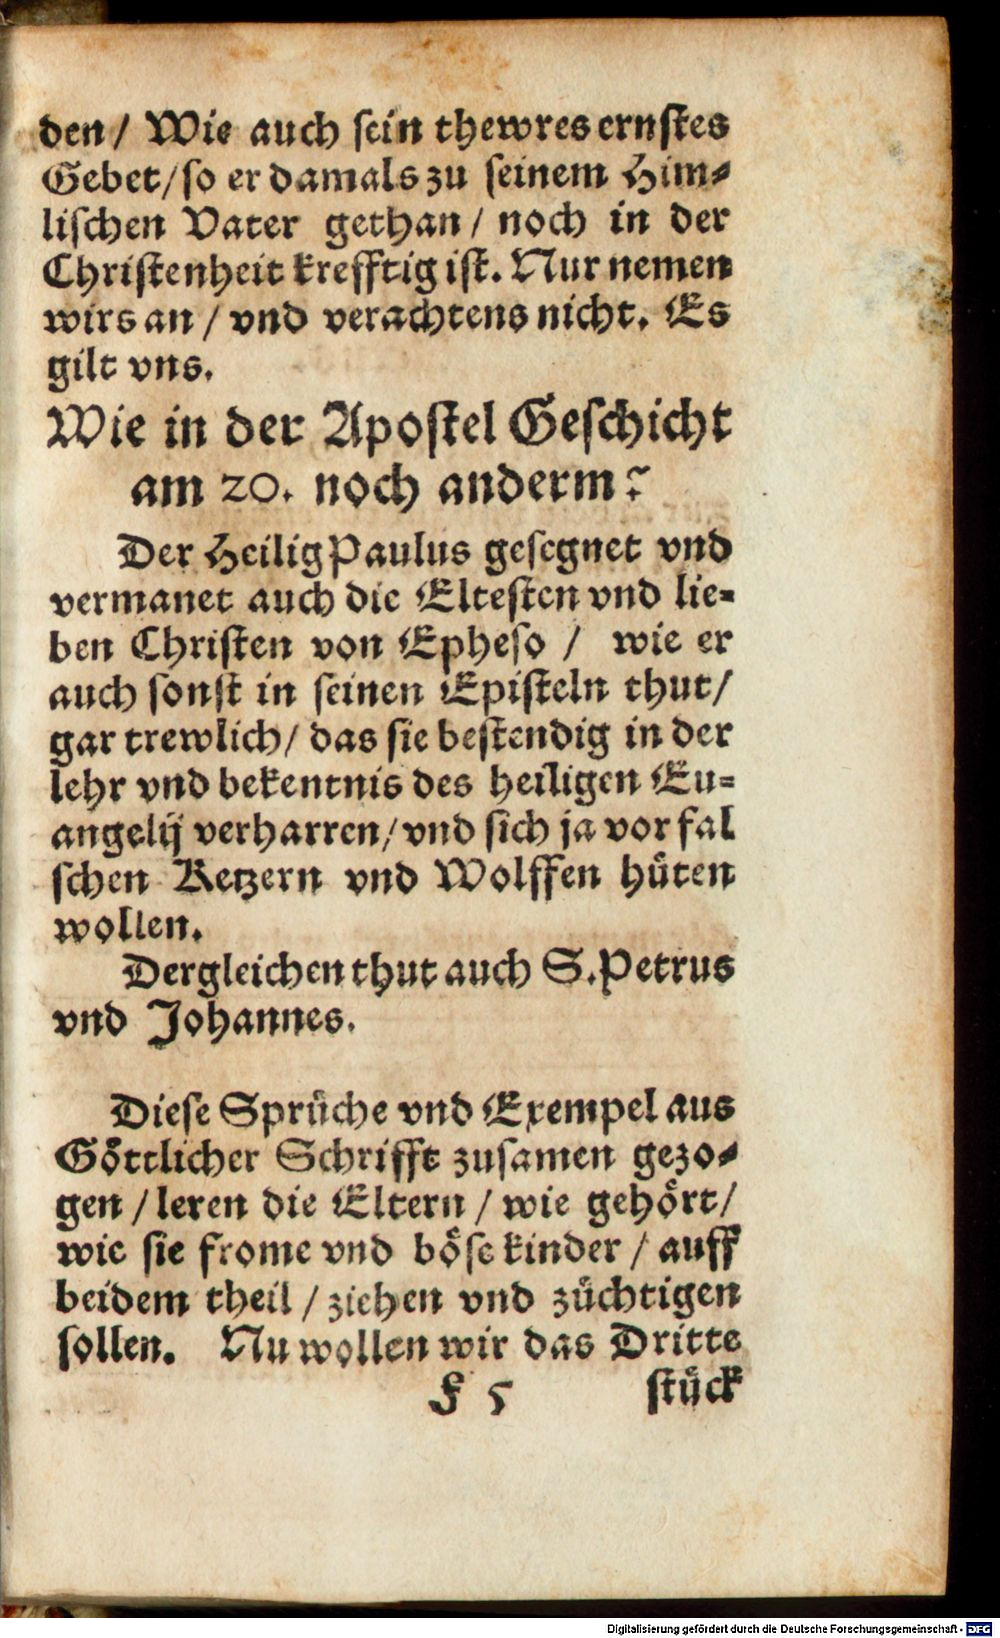 den / Wie auch sein thewres ernstes
Gebet / so er damals zu seinem Him-
lischen Vater gethan / noch in der
Christenheit krefftig ist. Nur nemen
wirs an / vnd verachtens nicht. Es
gilt vns.
Wie in der Apostel Geschicht
am 20. noch anderm?
Der Heilig Paulus gesegnet vnd
vermanet auch die Eltesten vnd lie-
ben Christen von Epheso / wie er
auch sonst in seinen Episteln thut /
gar trewlich / das sie bestendig in der
lehr vnd bekentnis des heiligen Eu-
angelij verharren / vnd sich ja vor fal
schen Ketzern vnd Wolffen hüten
wollen.
Dergleichen thut auch S. Petrus
vnd Johannes.
Diese Sprüche vnd Exempel aus
Göttlicher Schrifft zusamen gezo-
gen / leren die Eltern / wie gehört /
wie sie frome vnd böse kinder / auff
beidem theil / ziehen vnd züchtigen
sollen. Nu wollen wir das Dritte
F 5 stück
Digitalisierung gefördert durch die Deutsche Forschungsgemeinschaft - DFG